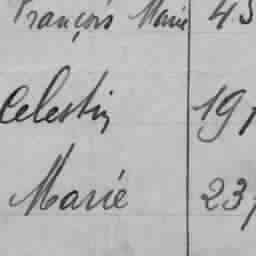 François Marie 45
Celestin 191
Marie 23